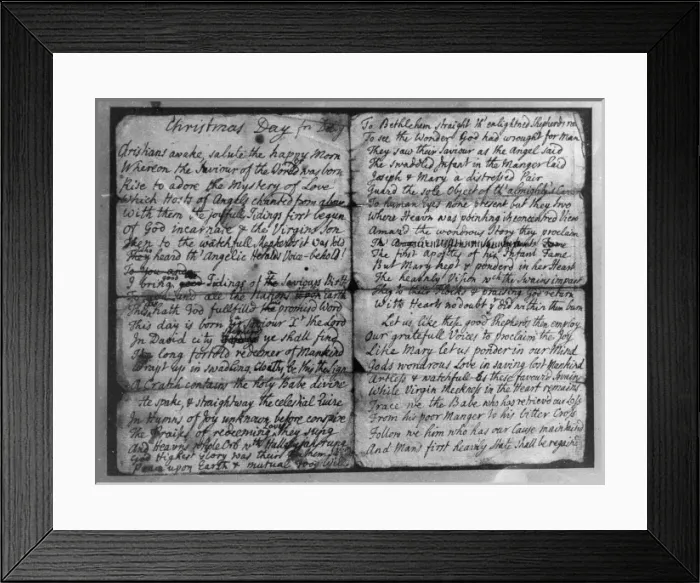 Christmas Day for Dolly
Christians awake, salute the happy Morn
Whereon the Saviour of the World was born
Rise to adore the Mystery of Love
Which Hosts of Angels chanted from above
With them the joyfull Tidings first begun
of God incarnate & the Virgins Son
Then to the watchfull Shepherds it was told
Who heard th' Angelic Herald's Voice behold!
I bring good Tidings of the Saviours Birth
To you and all the Nations upon Earth
This hath God fullfill'd the promis'd Word
This day is born a Saviour the Lord
In David city ye shall find
The long foretold redeemer of Mankind
Wrapt up in swadling Cloaths, be this the sign
A Cratch contains the holy babe divine
He spake, & straightway the celestial Quire
In Hymns of Joy unknown before conspire
The Praises of redeeming Love they sung
And Heavns whole Orb with Hallelujahs rung
God Highest glory was their Anthem still
Peace upon Earth & mutual Good Will
To Bethlehem straight th' enlightned Shepherds run
To see the Wonder God had wrought for Man
They saw their Saviour as the Angel said
The swaddled Infant in the Manger laid
Joseph & Mary a distressed Pair
Guard the sole Object of th' almighty's Care
To human Eyes none present but they two
Where Heavn was pointing its concentred View
Amaz'd the wondrous Story they proclaim
The first apostles of his Infant Fame
But Mary kept & ponder'd in her Heart
The heavenly Vision wch the Swains impart
They to their Flocks & praising God return
With Hearts no doubt yt did within them burn
Let us like these good Shepherds then employ
Our gratefull Voices to proclaim the Joy
Like Mary let us ponder in our Mind
Gods wondrous Love in saving lost Mankind
Artless & watchfull as these favour'd Swains
While Virgin Meekness in the Heart remains
Trace we the Babe who has retriev'd our loss
From his poor Manger to his bitter Cross
Follow we him who has our Cause maintained
And Man's first heavnly State shall be regained